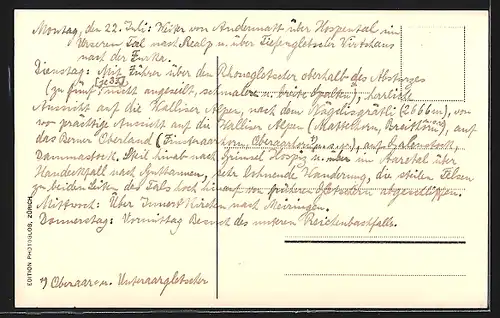 Montag, den 22. Juli: Weiter von Andermatt über Hospental im
Urseren Tal nach Realp u. über Tiefengletscher Wirtshaus
nach der Furka.
Dienstag: Mit Führer über den Rhonegletscher oberhalb des Absturzes
(zu fünft nicht angeseilt, schmale u. breite Spalten), herrliche
Aussicht auf die Walliser Alpen, nach dem Nägelisgrätli (2666m), von
wo prächtige Aussicht auf die Walliser Alpen (Matterhorn, Breithorn), auf
das Berner Oberland (Finsteraarhorn, Oberaarhorn), auf Galenstock,
Dammastock. Steil hinab nach Grimsel Hospiz u. über im Aaretal über
Handeckfall nach Guttannen, sehr lohnende Wanderung, die steilen Felsen
zu beiden Seiten des Tals hoch hinauf von früheren Gletschern abgeschliffen.
Mittwoch: Über Innertkirchen nach Meiringen.
Donnerstag: Vormittag Besuch des unteren Reichenbachfalls.
*) Oberaar u. Unteraargletscher
EDITION PHOTOGLOB, ZÜRICH.